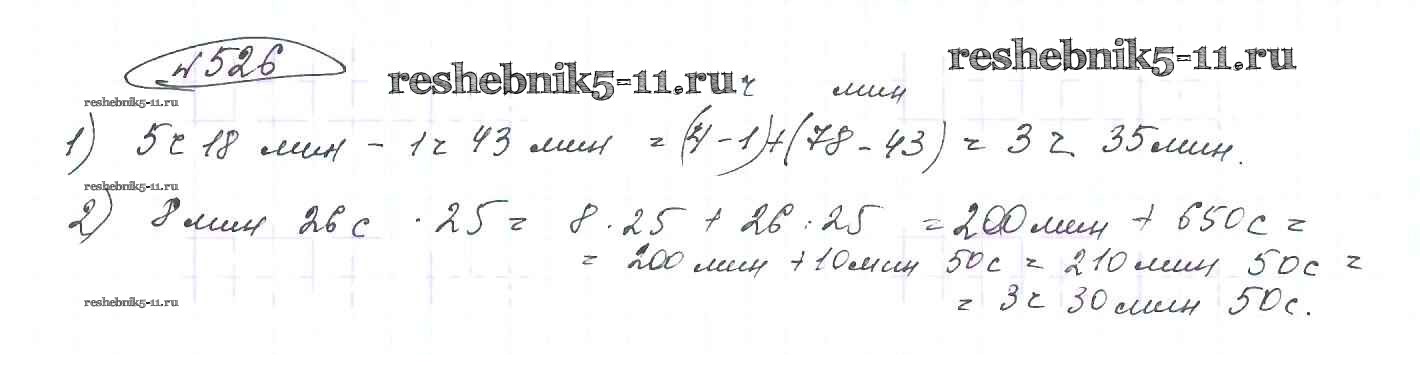 №526
reshebnik5-11.ru
reshebnik5-11.ru
reshebnik5-11.ru
ч мин
1) 5ч 18 мин - 1ч 43 мин = (4-1)+(78-43) = 3ч 35мин.
reshebnik5-11.ru
2) 8мин 26с · 25 = 8·25 + 26·25 = 200мин + 650с =
= 200мин + 10мин 50с = 210мин 50с =
reshebnik5-11.ru
= 3ч 30мин 50с.